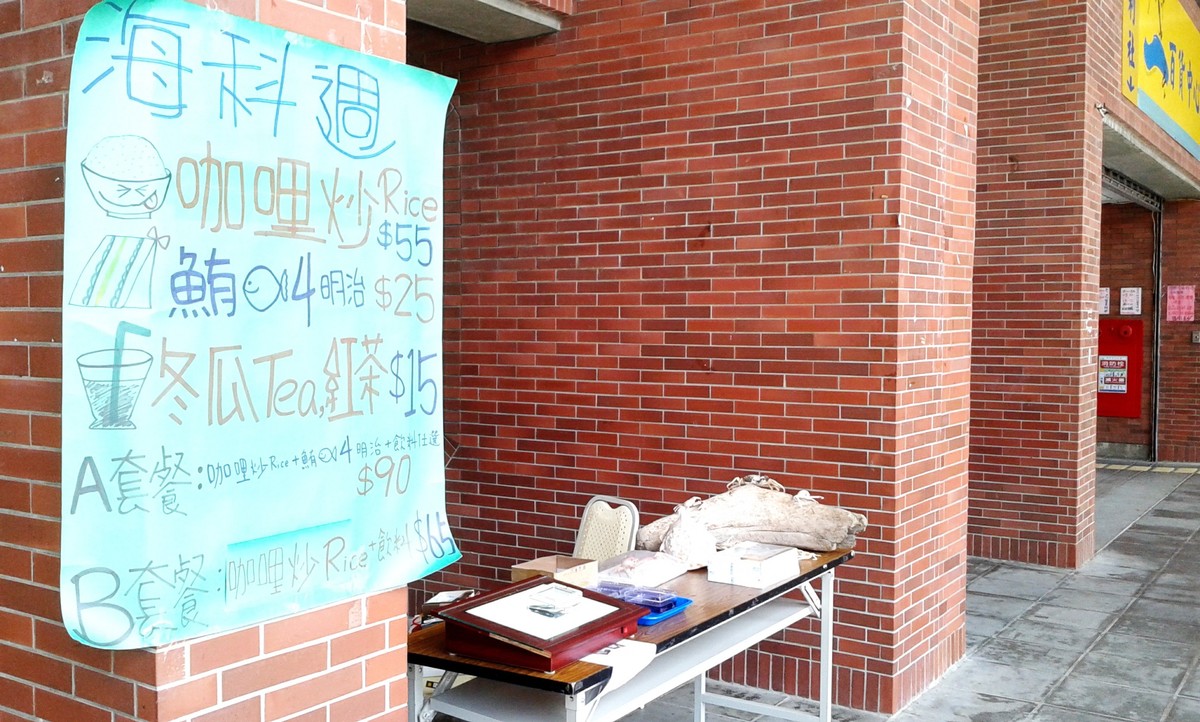 海科週
咖哩炒Rice
$55
鮪 4 明治 $25
冬瓜Tea,紅茶 $15
A套餐:咖哩炒Rice+鮪 4 明治+飲料任選
$90
B套餐:咖哩炒Rice+飲料 $65
百貨中
消防栓